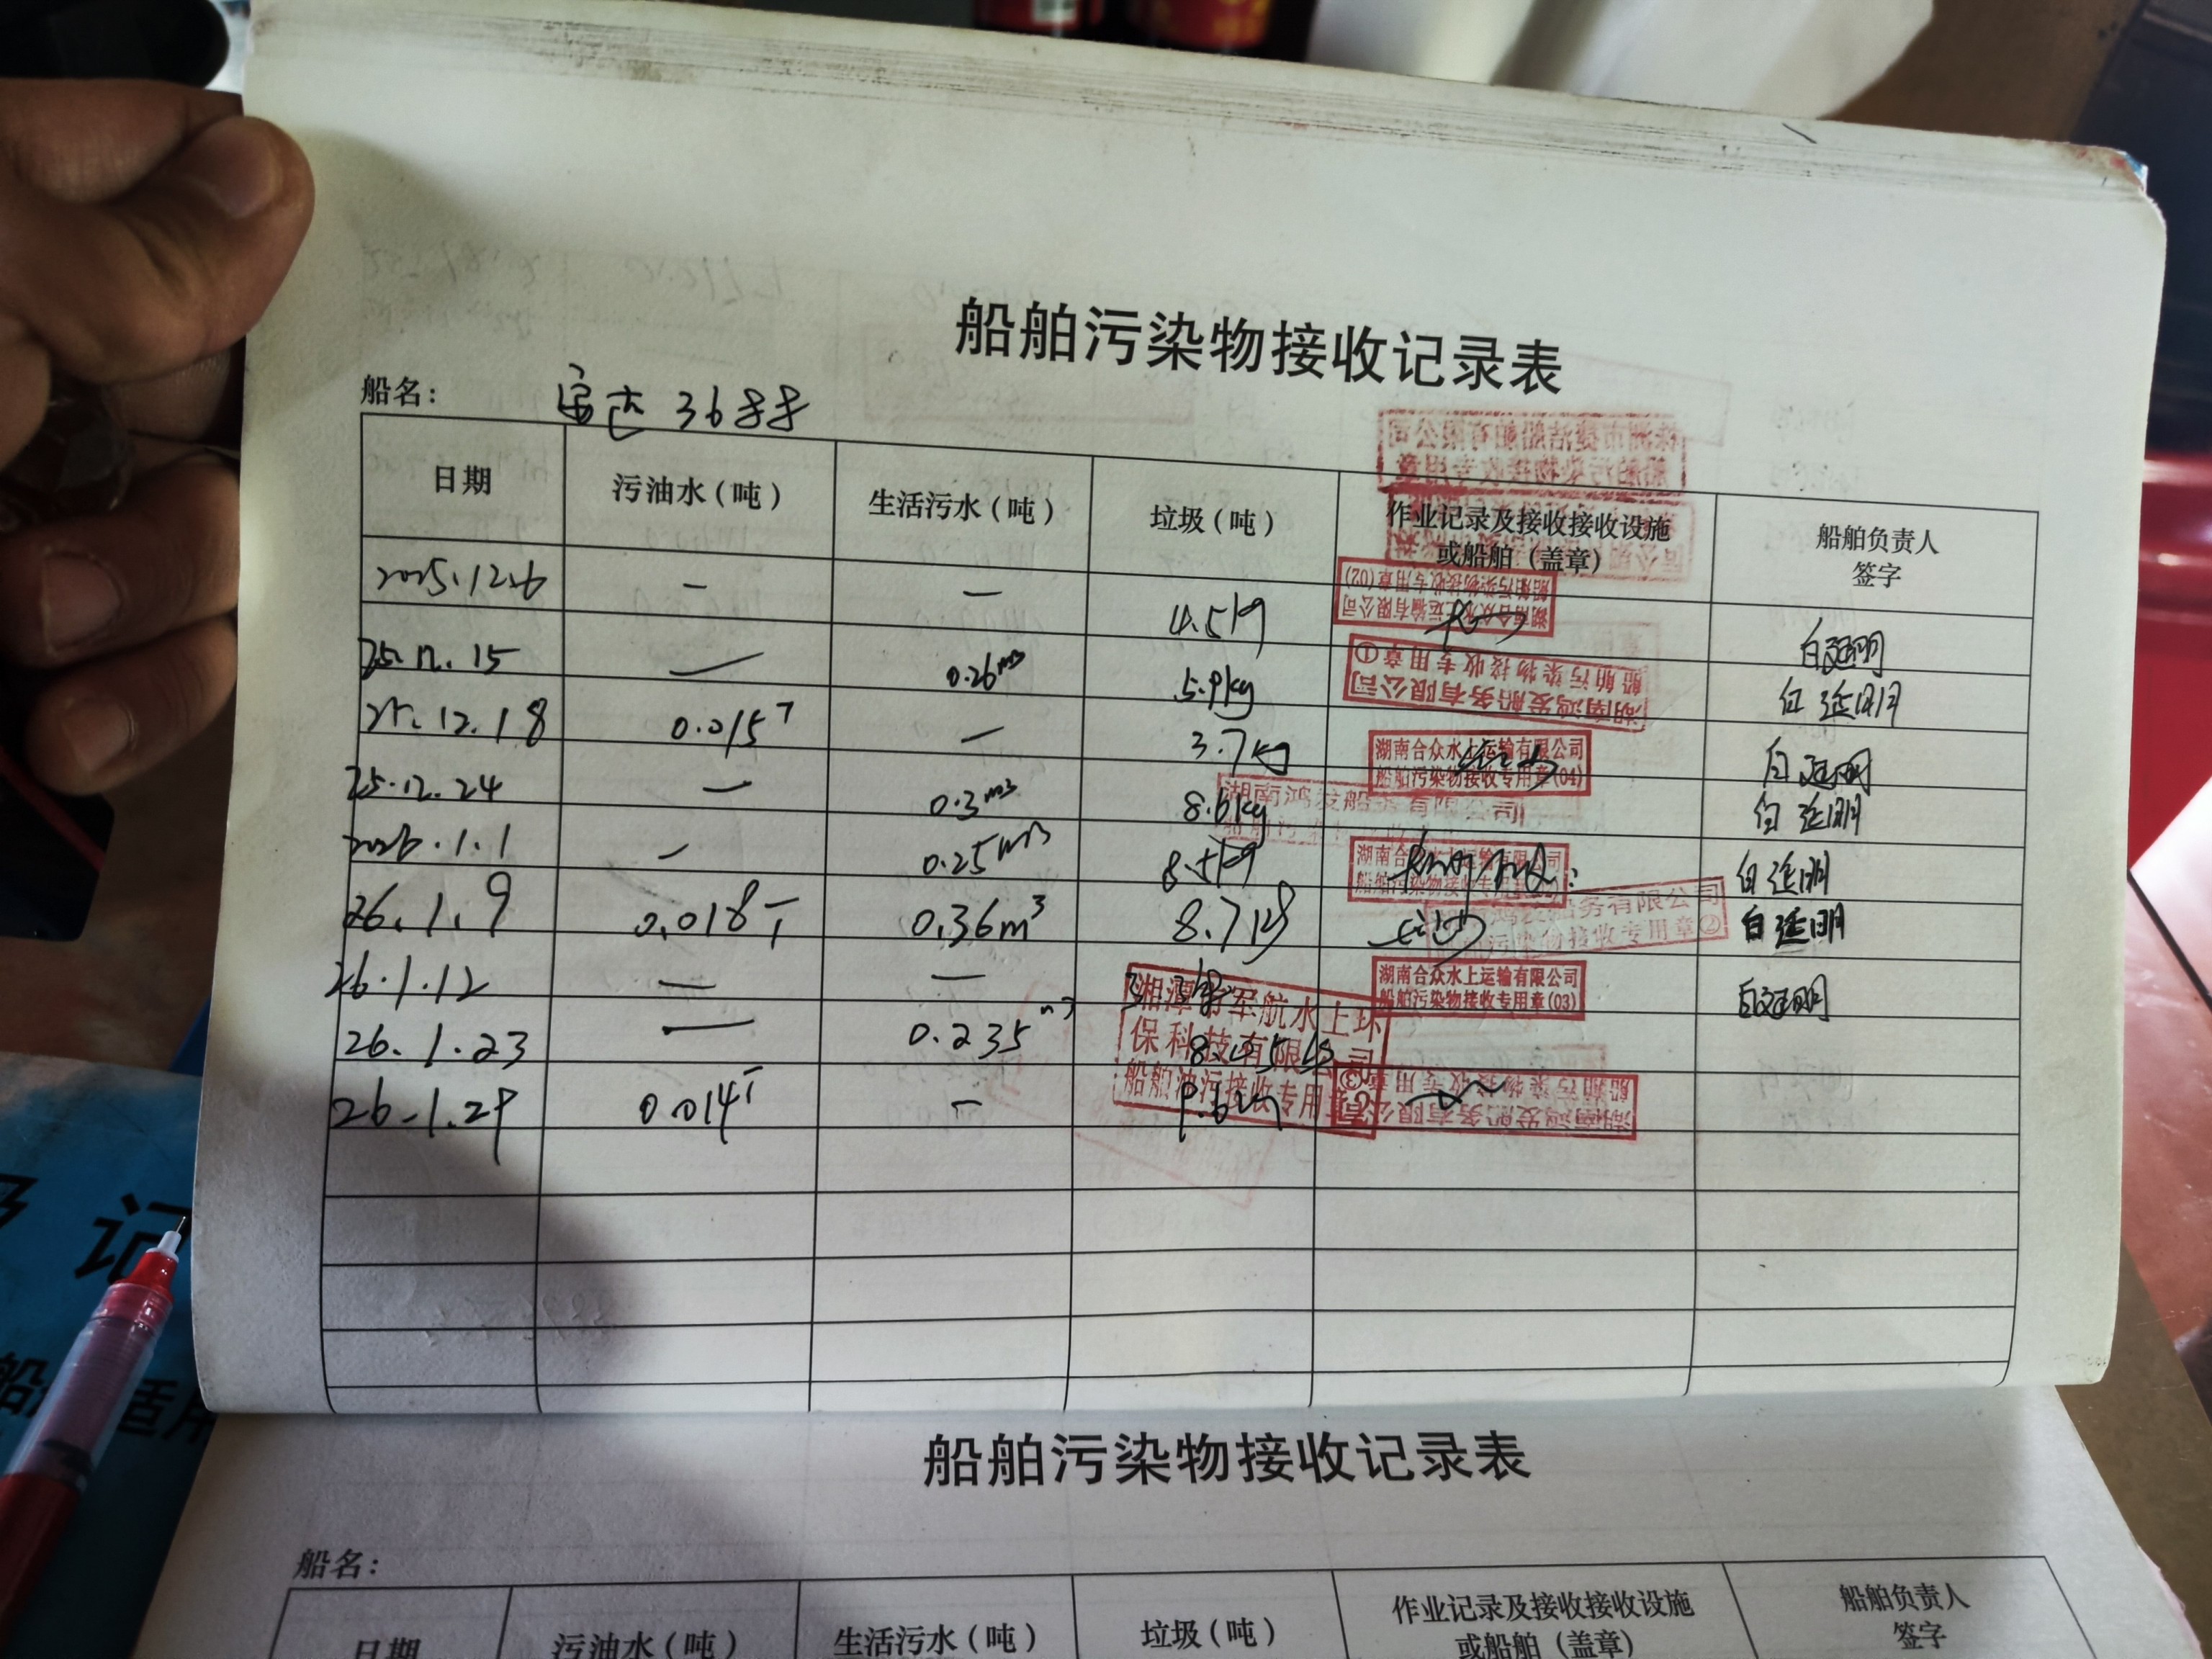 船舶污染物接收记录表
船名: 3688
日期 污油水(吨) 生活污水(吨) 垃圾(吨) 作业记录及接收接收设施或船舶(盖章) 船舶负责人签字
2025.12.6 — — 4.5kg 湖南合众水上运输有限公司 船舶污染物接收专用章(02) 白延明
25.12.15 — 0.26m3 5.9kg 湖南鸿发船务有限公司 船舶污染物接收专用章① 白延明
25.12.18 0.015T — 3.7kg 湖南合众水上运输有限公司 船舶污染物接收专用章(04) 白延明
25.12.24 — 0.3m3 8.6kg 湖南鸿发船务有限公司 白延明
2026.1.1 — 0.25m3 8.5kg 湖南合众水上运输有限公司 船舶污染物接收专用章 白延明
26.1.9 0.018T 0.36m3 8.7kg 船务有限公司 污染物接收专用章② 白延明
26.1.12 — — 湖南合众水上运输有限公司 船舶污染物接收专用章(03) 白延明
26.1.23 — 0.235m3 湘潭市军航水上环保科技有限公司 船舶油污接收专用章
26.1.29 0.014T — 9.6kg 湖南鸿发船务有限公司 船舶污染物接收专用章③
株洲市捷洁船舶有限公司
船舶污染物接收专用章
船舶污染物接收记录表
船名:
日期 污油水(吨) 生活污水(吨) 垃圾(吨) 作业记录及接收接收设施或船舶(盖章) 船舶负责人签字
记
船 适用